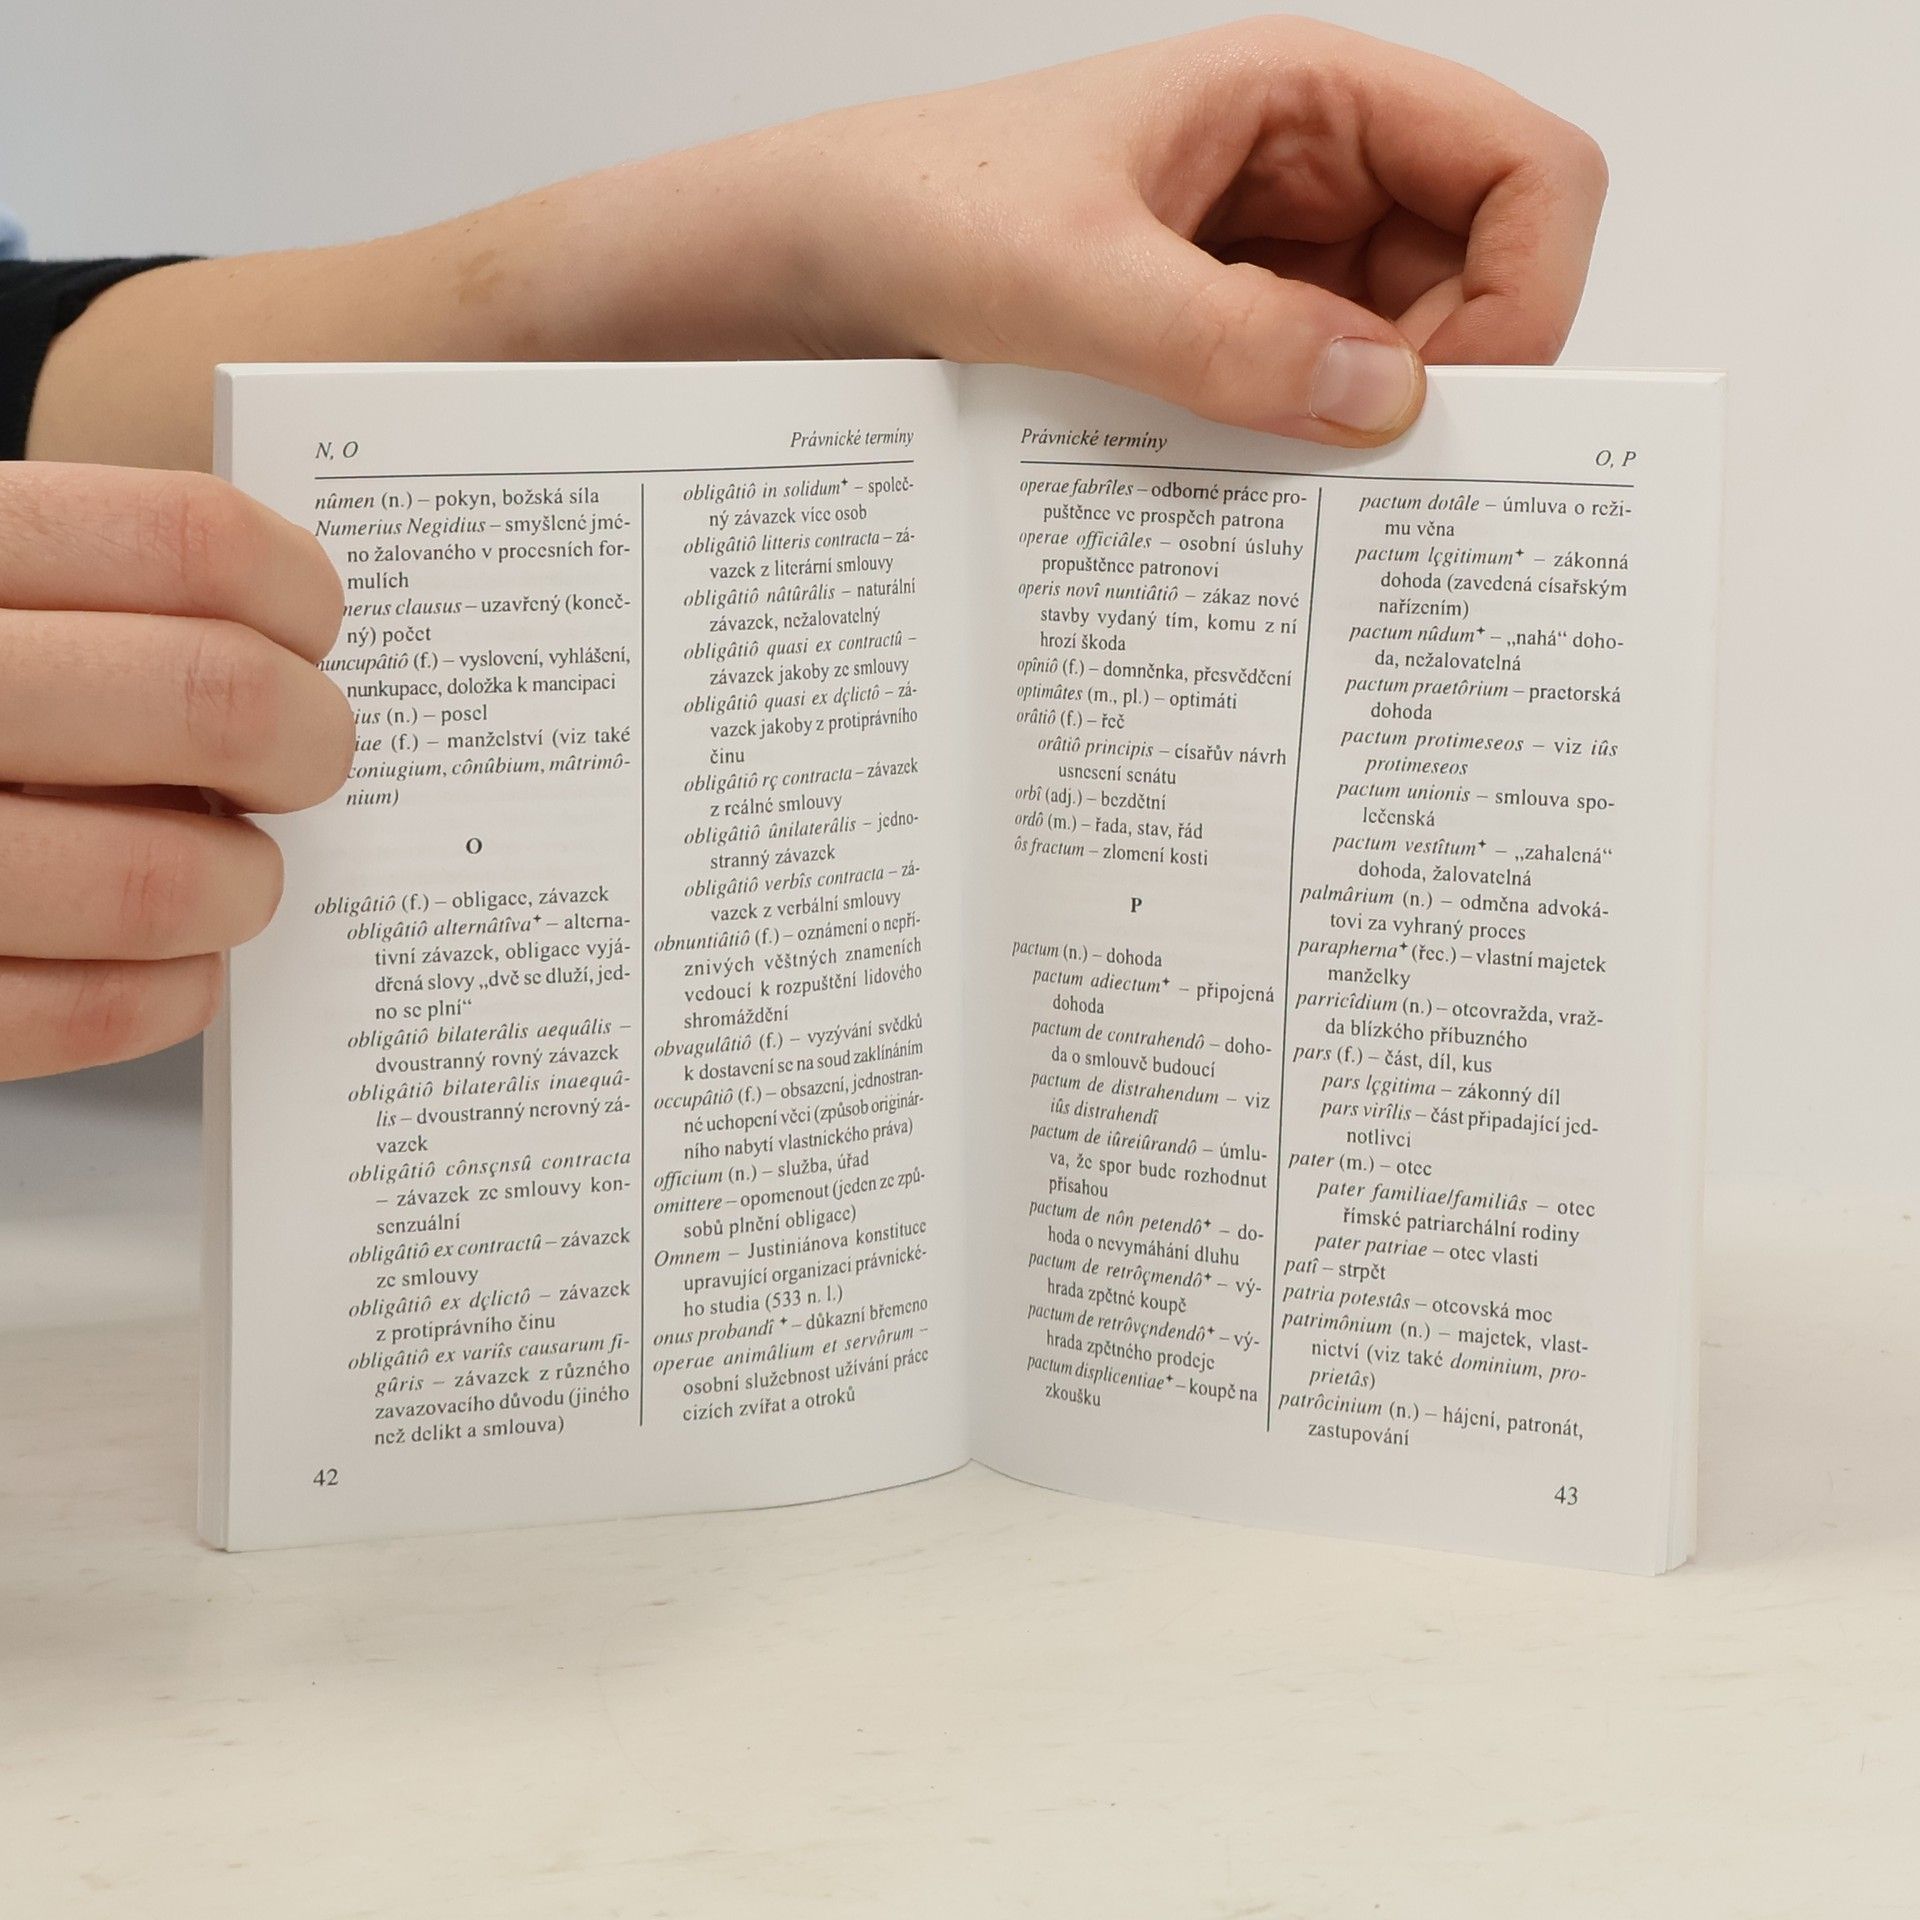 N, O
Právnické termíny
nûmen (n.) – pokyn, božská síla
Numerius Negidius – smyšlené jmé-
no žalovaného v procesních for-
mulích
clausus – uzavřený (koneč-
ný) počet
nuncupâtiô (f.) – vyslovení, vyhlášení,
nunkupace, doložka k mancipaci
(n.) – posel
(f.) – manželství (viz také
coniugium, cônûbium, mâtrimô-
nium)
O
obligâtiô (f.) – obligace, závazek
obligâtiô alternâtîva+ – alterna-
tivní závazek, obligace vyjá-
dřená slovy „dvě se dluží, jed-
no se plní“
obligâtiô bilaterâlis aequâlis –
dvoustranný rovný závazek
obligâtiô bilaterâlis inaequâ-
lis – dvoustranný nerovný zá-
vazek
obligâtiô cônsęnsû contracta
– závazek ze smlouvy kon-
senzuální
obligâtiô ex contractû – závazek
ze smlouvy
obligâtiô ex dęlictô – závazek
z protiprávního činu
obligâtiô ex variîs causarum fi-
gûris – závazek z různého
zavazovacího důvodu (jiného
než delikt a smlouva)
42
obligâtiô in solidum+ – společ-
ný závazek více osob
obligâtiô litteris contracta – zá-
vazek z literární smlouvy
obligâtiô nâtûrâlis – naturální
závazek, nežalovatelný
obligâtiô quasi ex contractû –
závazek jakoby ze smlouvy
obligâtiô quasi ex dęlictô – zá-
vazek jakoby z protiprávního
činu
obligâtiô rę contracta – závazek
z reálné smlouvy
obligâtiô ûnilaterâlis – jedno-
stranný závazek
obligâtiô verbîs contracta – zá-
vazek z verbální smlouvy
obnuntiâtiô (f.) – oznámení o nepří-
znivých věštných znameních
vedoucí k rozpuštění lidového
shromáždění
obvagulâtiô (f.) – vyzývání svědků
k dostavení se na soud zaklínáním
occupâtiô (f.) – obsazení, jednostran-
né uchopení věci (způsob originár-
ního nabytí vlastnického práva)
officium (n.) – služba, úřad
omittere – opomenout (jeden ze způ-
sobů plnění obligace)
Omnem – Justiniánova konstituce
upravující organizaci právnické-
ho studia (533 n. l.)
onus probandî + – důkazní břemeno
operae animâlium et servôrum –
osobní služebnost užívání práce
cizích zvířat a otroků
Právnické termíny
O, P
operae fabrîles – odborné práce pro-
puštěnce ve prospěch patrona
operae officiâles – osobní úsluhy
propuštěnce patronovi
operis novî nuntiâtiô – zákaz nové
stavby vydaný tím, komu z ní
hrozí škoda
opîniô (f.) – domněnka, přesvědčení
optimâtes (m., pl.) – optimáti
orâtiô (f.) – řeč
orâtiô principis – císařův návrh
usnesení senátu
orbî (adj.) – bezdětní
ordô (m.) – řada, stav, řád
ôs fractum – zlomení kosti
P
pactum (n.) – dohoda
pactum adiectum+ – připojená
dohoda
pactum de contrahendô – doho-
da o smlouvě budoucí
pactum de distrahendum – viz
iûs distrahendî
pactum de iûreiûrandô – úmlu-
va, že spor bude rozhodnut
přísahou
pactum de nôn petendô+ – do-
hoda o nevymáhání dluhu
pactum de retrôęmendô+ – vý-
hrada zpětné koupě
pactum de retrôvęndendô+ – vý-
hrada zpětného prodeje
pactum displicentiae+ – koupě na
zkoušku
pactum dotâle – úmluva o reži-
mu věna
pactum lęgitimum+ – zákonná
dohoda (zavedená císařským
nařízením)
pactum nûdum+ – „nahá“ doho-
da, nežalovatelná
pactum praetôrium – praetorská
dohoda
pactum protimeseos – viz iûs
protimeseos
pactum unionis – smlouva spo-
lečenská
pactum vestîtum+ – „zahalená“
dohoda, žalovatelná
palmârium (n.) – odměna advoká-
tovi za vyhraný proces
parapherna+ (řec.) – vlastní majetek
manželky
parricîdium (n.) – otcovražda, vraž-
da blízkého příbuzného
pars (f.) – část, díl, kus
pars lęgitima – zákonný díl
pars virîlis – část připadající jed-
notlivci
pater (m.) – otec
pater familiae/familiâs – otec
římské patriarchální rodiny
pater patriae – otec vlasti
patî – strpět
patria potestâs – otcovská moc
patrimônium (n.) – majetek, vlast-
nictví (viz také dominium, pro-
prietâs)
patrôcinium (n.) – hájení, patronát,
zastupování
43